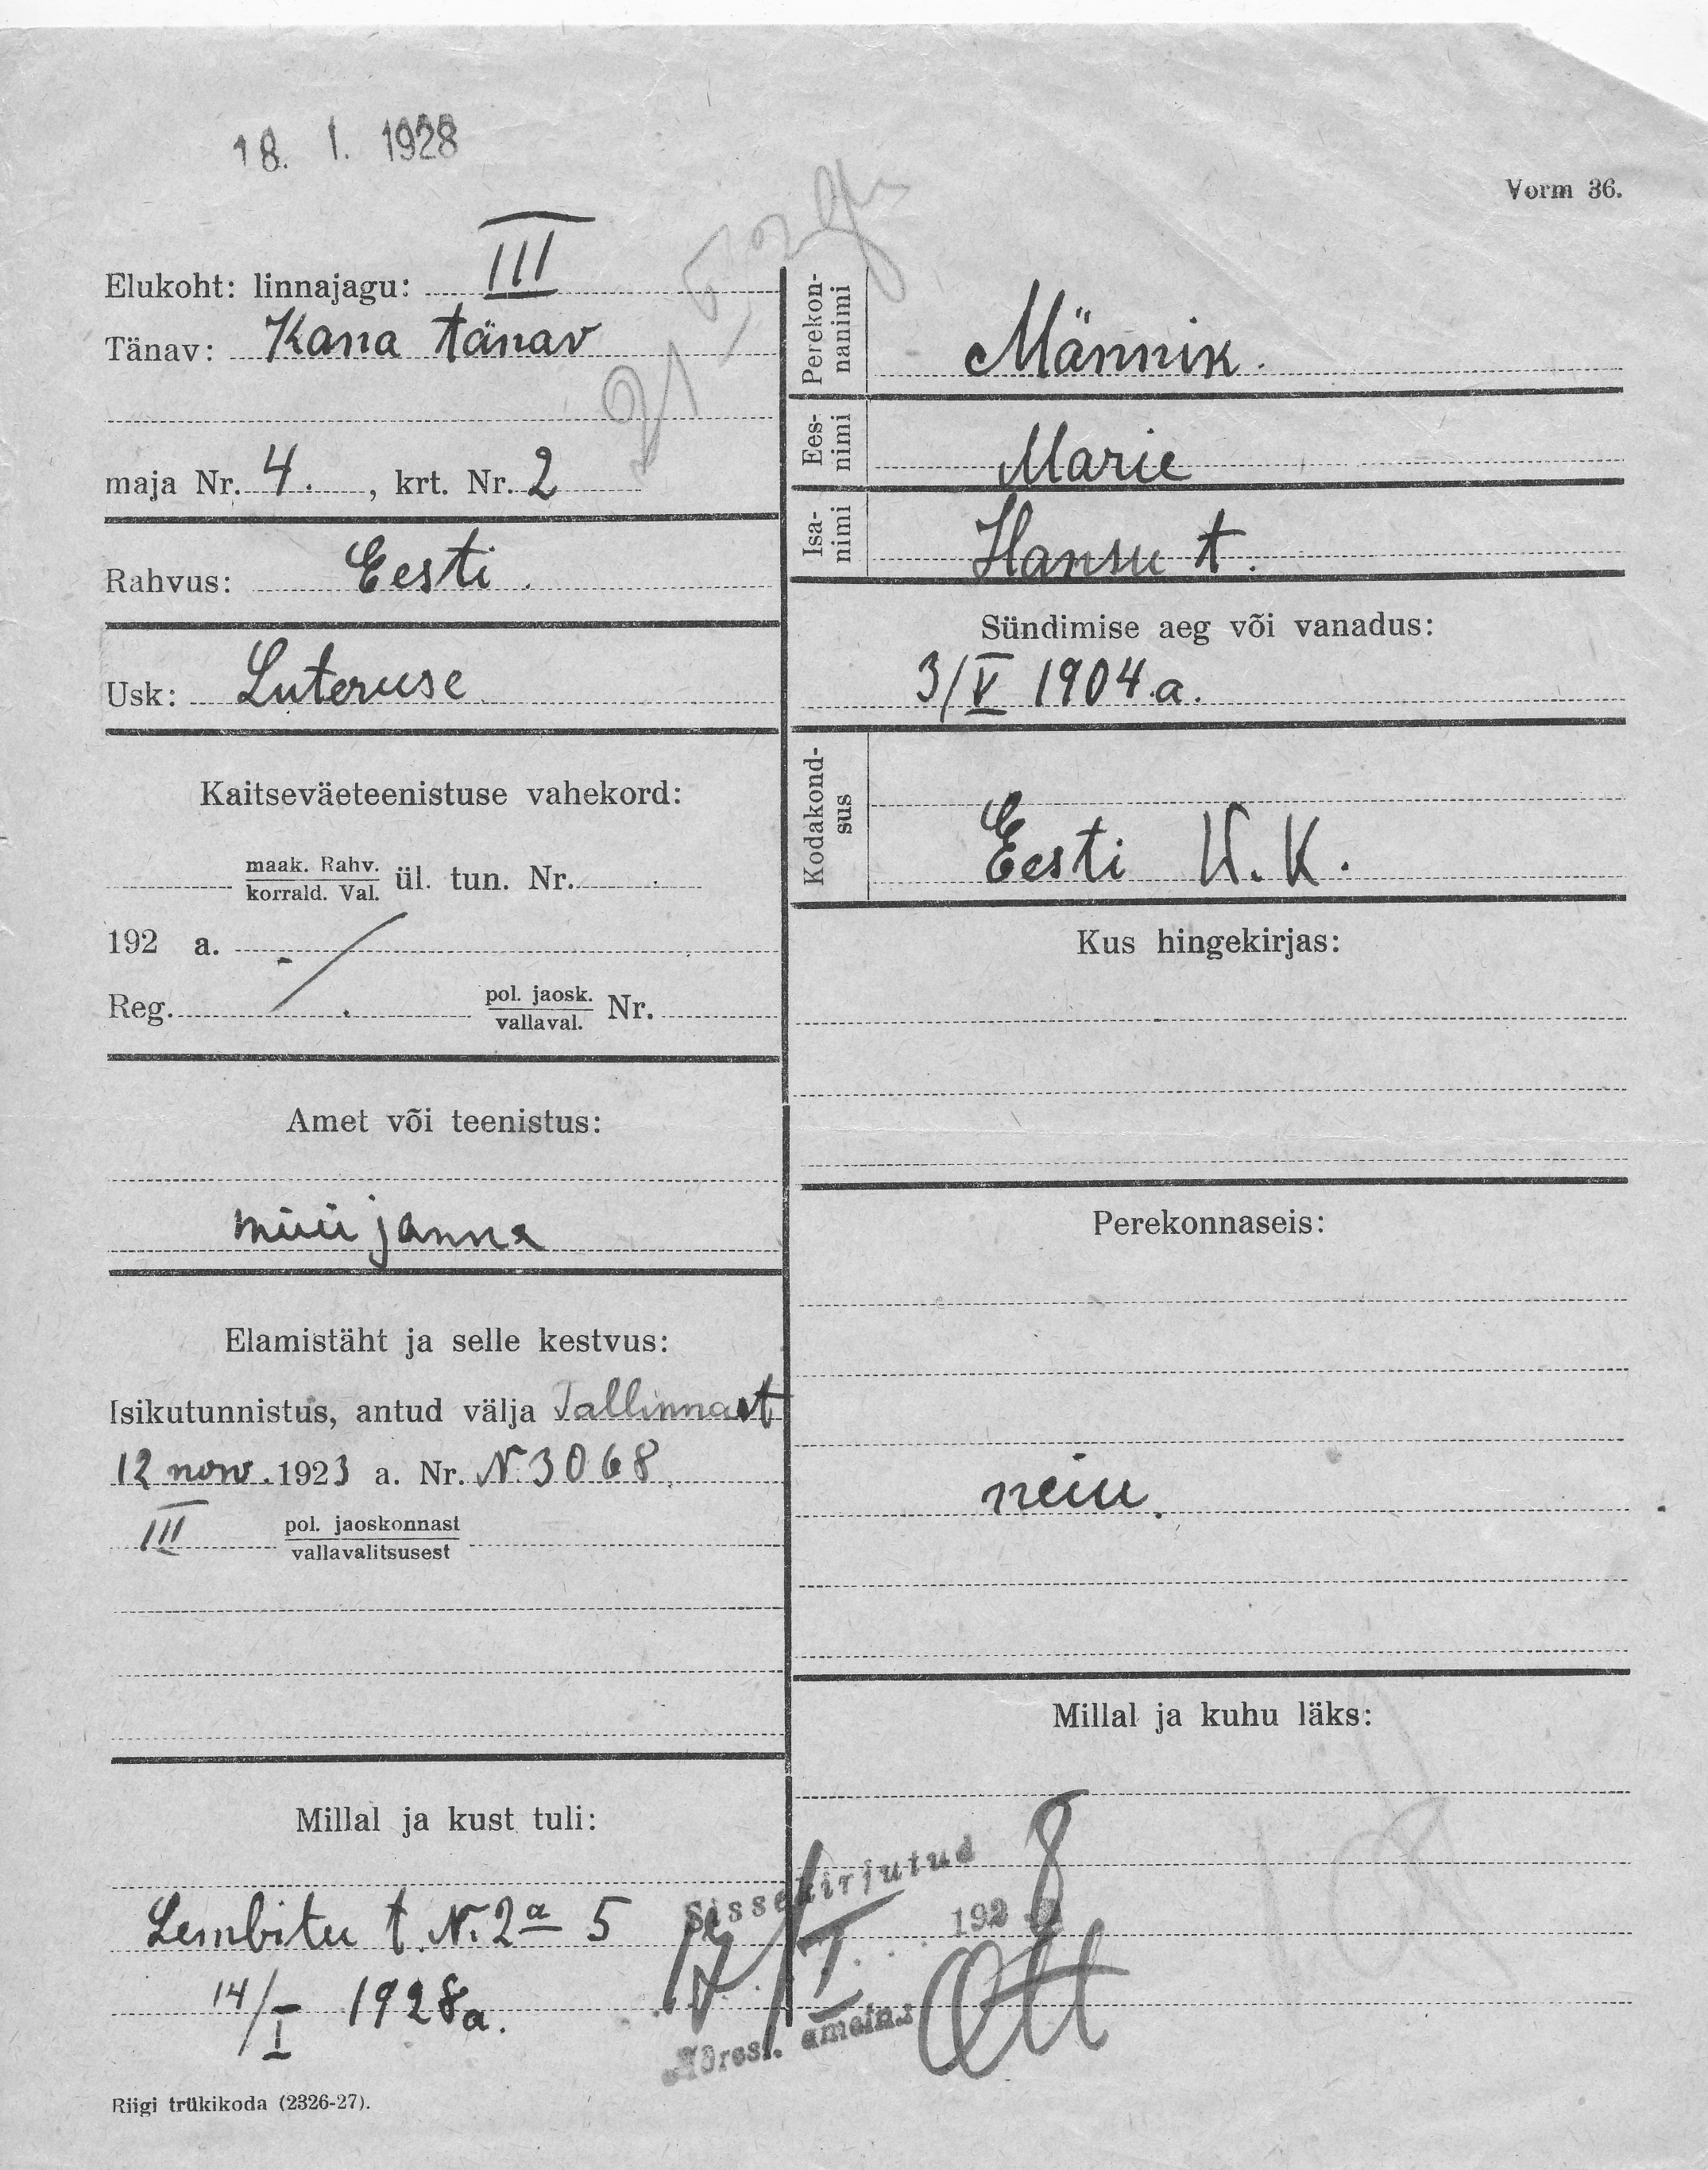 18. I. 1928
Vorm 36.
Elukoht: linnajagu: III
Tänav: Kana tänav
maja Nr. 4. , krt. Nr. 2
Rahvus: Eesti.
Usk: Luteruse
Kaitseväeteenistuse vahekord:
maak. Rahv.
korrald. Val. ül. tun. Nr.
192 a. -
Reg. pol. jaosk.
vallaval. Nr.
Amet või teenistus:
müüjanna
Elamistäht ja selle kestvus:
Isikutunnistus, antud välja Tallinnast
12 now. 1923 a. Nr. N. 3068
III pol. jaoskonnast
vallavalitsusest
Millal ja kust tuli:
Lembitu t. N. 2a 5
14/I 1928a.
Riigi trükikoda (2326-27).
Perekon-
nanimi Männik.
Ees-
nimi Marie
Isa-
nimi Hansu t.
Sündimise aeg või vanadus:
3/V 1904.a.
Kodakond-
sus Eesti W. K.
Kus hingekirjas:
Perekonnaseis:
neiu.
Millal ja kuhu läks:
Sissekirjutud
192 8
Adresl. ametn.: Ott